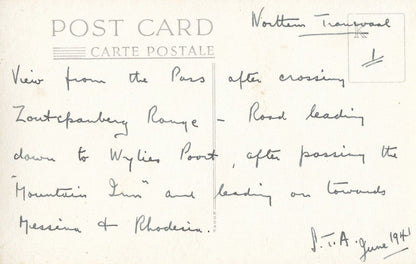 Northern Transvaal
POST CARD
CARTE POSTALE
K
1
View from the Pass after crossing
Zoutspanberg Range - Road leading
down to Wylies Poort, after passing the
"Mountain Inn" and leading on towards
Messina & Rhodesia.
S.T.A. June 1941